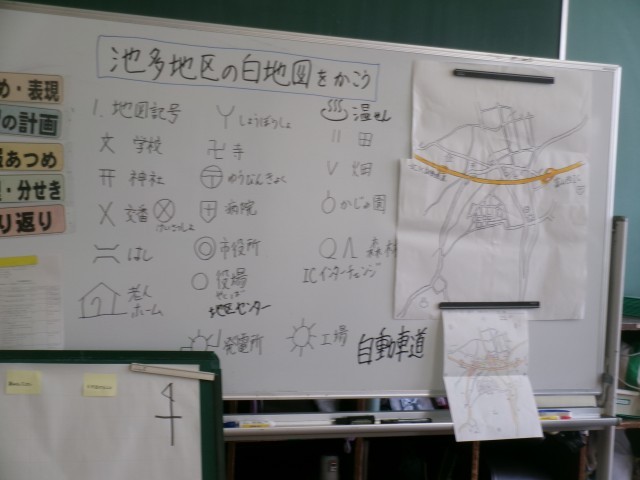 池多地区の白地図をかこう
め・表現
の計画
あつめ
・分せき
り返り
1. 地図記号
文 学校
神社
交番
けいさつしょ
はし
老人
ホーム
しょうぼうしょ
卍 寺
〒 ゆうびんきょく
病院
◎ 市役所
○ 役場
地区センター
発電所
温せん
田
畑
かじゅ園
森林
ICインターチェンジ
工場
自動車道